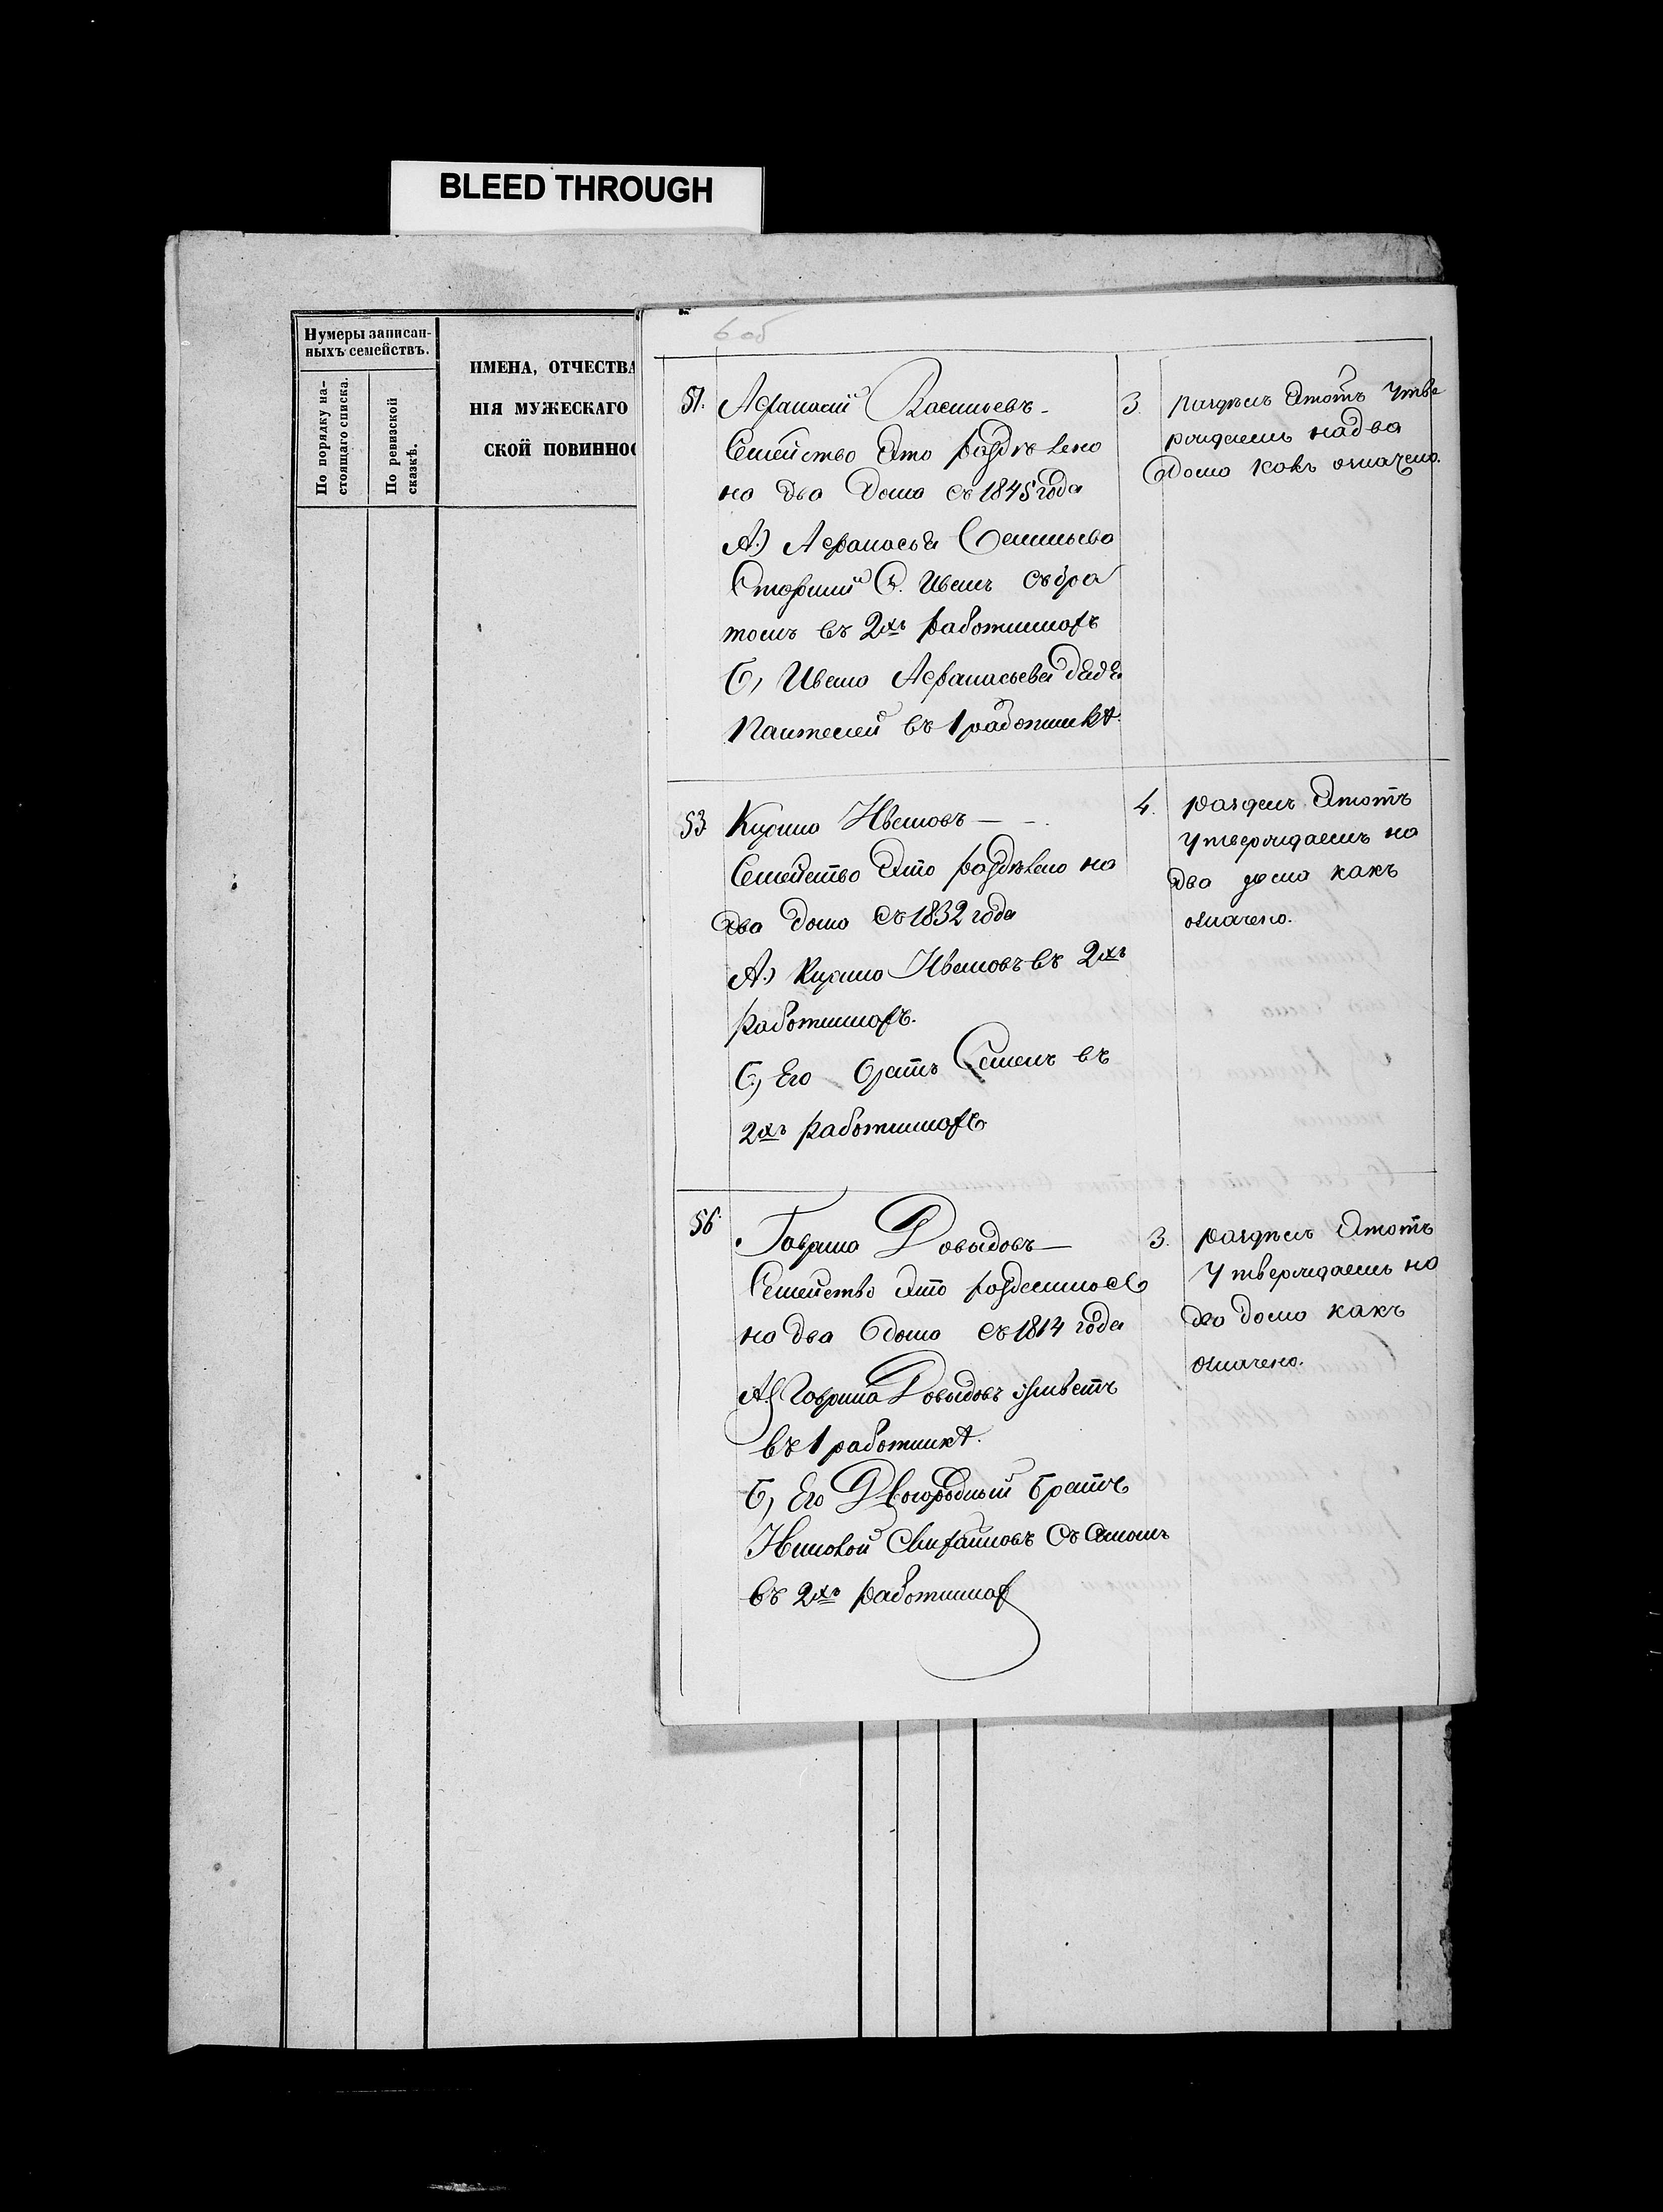 BLEED THROUGH
Нумеры записан-
ныхъ семействъ.
По порядку на-
стоящаго списка.
По ревизской
сказкѣ.
ИМЕНА, ОТЧЕСТВА
НІЯ МУЖЕСКАГО
СКОЙ ПОВИННОС
6 об
51. Афанасій Васильевъ
Семейство Это раздѣлено
на два дома съ 1845 года
А.) Афанасья Васильева
старшій С. Иванъ съ бра
томъ въ 2хъ работникахъ
Б, Ивана Афанасьева дядя
Пантелей въ 1 работникѣ
3. раздѣлъ Этотъ утве
рждаемъ на два
дома какъ означено.
53 Кузьма Ивановъ
Семейство Это раздѣлено на
два дома съ 1832 года
А.) Кузьма Ивановъ въ 2хъ
работникахъ.
Б, Его братъ Семенъ въ
2хъ работникахъ
4. раздѣлъ Этотъ
утверждаемъ на
два дома какъ
означено.
56. Гаврила Давыдовъ
Семейство Это разделилось
на два дома съ 1814 года
А.) Гаврила Давыдовъ живетъ
въ 1 работникѣ.
Б, Его Двоюродный братъ
Николай Михайловъ съ сыномъ
въ 2хъ работниках
3. раздѣлъ Этотъ
утверждаемъ на
два дома какъ
означено.